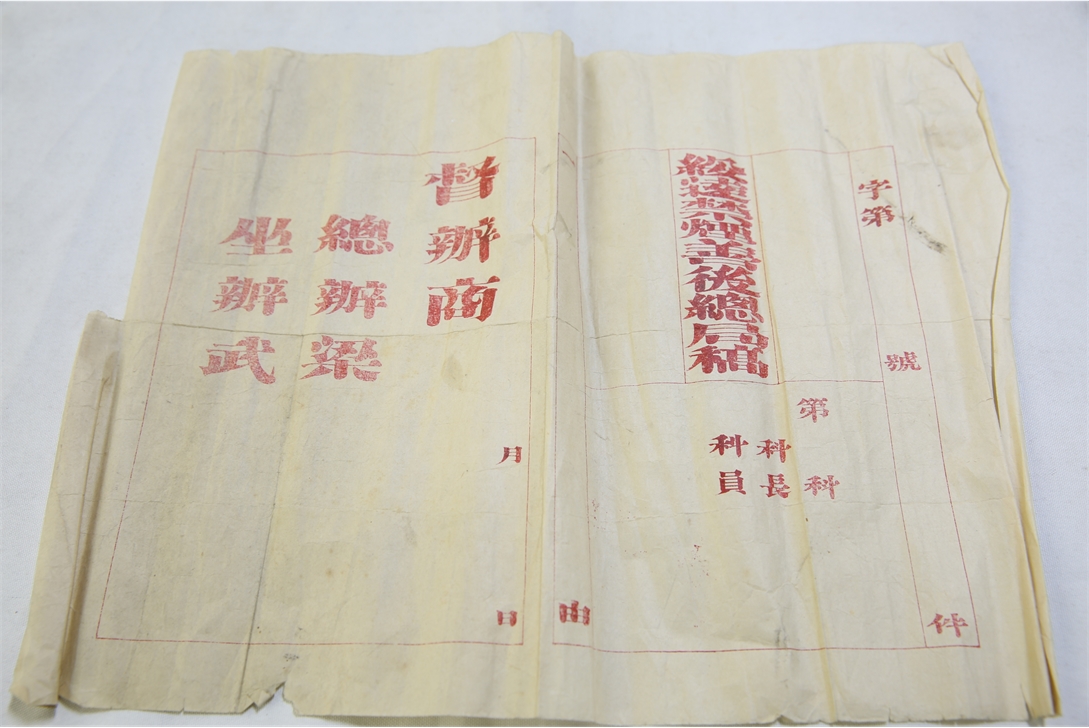 件
字第 號
綏遠禁煙善後總局稿
第 科
科長
科員
一 由
月 日
督辦商
總辦梁
坐辦武